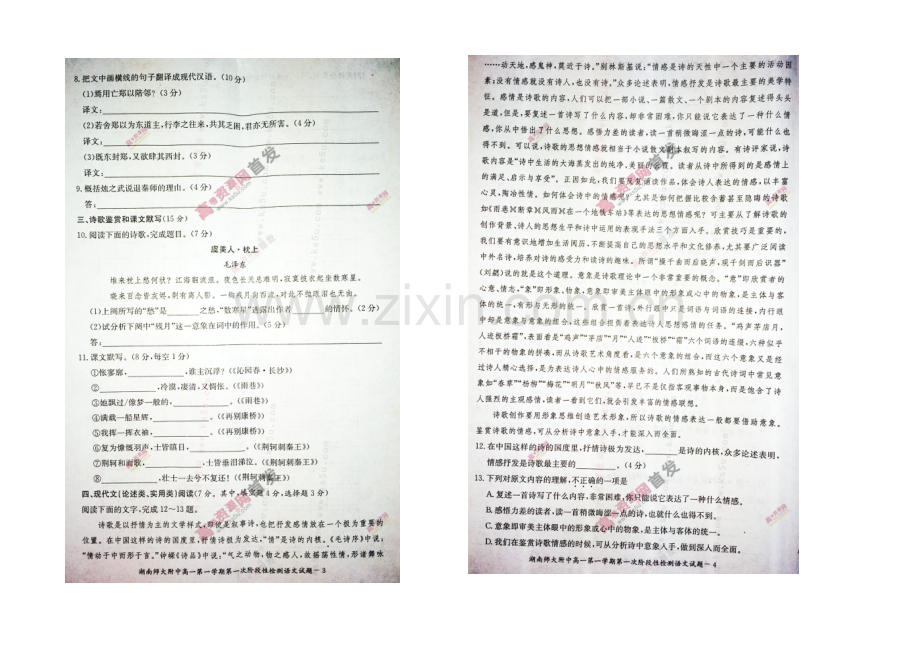 8.把文中画横线的句子翻译成现代汉语。(10分)
(1)焉用亡郑以陪邻?(3分)
译文:
(2)若舍郑以为东道主,行李之往来,共其乏困,君亦无所害。(4分)
译文:
(3)既东封郑,又欲肆其西封。(3分)
译文:
9.概括烛之武说退秦师的理由。(4分)
答:
三、诗歌鉴赏和课文默写(15分)
10.阅读下面的诗歌,完成题目。(7分)
虞美人·枕上
毛泽东
堆来枕上愁何状?江海翻波浪。夜色长天总难明,寂寞披衣起坐数寒星。
晓来百念皆灰烬,剩有离人影。一钩残月向西流,对此不抛眼泪也无由。
(1)上阕所写的“愁”是 之愁,“数寒星”透露出作者 的情怀。(2分)
(2)试分析下阕中“残月”这一意象在词中的作用。(5分)
答:
11.课文默写。(8分,每空1分)
①怅寥廓, ,谁主沉浮?(《沁园春·长沙》)
② ,冷漠,凄清,又惆怅。(《雨巷》)
③她飘过/像梦一般的, 。(《雨巷》)
④满载一船星辉, 。(《再别康桥》)
⑤我挥一挥衣袖, 。(《再别康桥》)
⑥复为慷慨羽声,士皆瞋目, 。(《荆轲刺秦王》)
⑦荆轲和而歌, ,士皆垂泪涕泣。(《荆轲刺秦王》)
⑧ ,壮士一去兮不复还!(《荆轲刺秦王》)
四、现代文(论述类、实用类)阅读(7分。其中,填空题4分,选择题3分)
阅读下面的文字,完成12~13题。
诗歌是以抒情为主的文学样式,即使是叙事诗,也把抒发感情放在一个极为重要的
位置。在中国这样的诗的国度里,抒情诗极为发达,“情”是诗的内核。《毛诗序》中说:
“情动于中而形于言。”钟嵘《诗品》中说:“气之动物,物之感人,故摇荡性情,形诸舞咏
湖南师大附中高一第一学期第一次阶段性检测语文试题-3
……动天地,感鬼神,莫近于诗。”别林斯基说:“情感是诗的天性中一个主要的活动因
素;没有情感就没有诗人,也没有诗。”众多论述表明,情感抒发是诗歌最主要的美学特
征。感情是诗歌的内容,人们可以把一部小说、一篇散文、一个剧本的内容复述得头头
是道,但是,要复述一首诗写了什么内容,却非常困难,你只能说它表达了一种什么情
感,你从中悟出了什么思想。感悟力差的读者,读一首稍微晦涩一点的诗,可能什么也
得不到。可以说,诗歌的思想情感就相当于小说散文剧本叙写的内容。有诗评家说,诗
歌内容是“诗中生活的大海蒸发出的纯净、美丽的云霞。读者从诗中所得到的是感情上
的满足、启示与享受”。正因如此,我们要反复诵读作品,体会诗人表达的情感,以丰富
心灵,陶冶性情。如何体会诗中的情感呢?尤其是如何把握比较含蓄甚至隐晦的诗歌
如《雨巷》《断章》《风雨》《在一个地铁车站》等表达的思想情感呢?可主要从了解诗歌的
创作背景、诗人的思想生平和诗中运用的表现手法三个方面入手。欣赏技巧是重要的,
我们要有意识地增加生活阅历,不断提高自己的思想水平和文化修养,尤其要广泛阅读
中外名诗,培养对诗的感受力和读诗的趣味。所谓“操千曲而后晓声,观千剑而后识器”
(刘勰)说的就是这个道理。意象是诗歌理论中一个非常重要的概念。“意”即欣赏者的
心意、情志,“象”即形象、物象,意象即审美主体眼中的形象或心中的物象,是主体与客
体的统一,有形与无形的统一。欣赏一首诗,外行眼中只是词语与词语的连接,内行眼
中却是意象与意象的组合,这些组合担负着表达诗人思想感情的任务。“鸡声茅店月,
人迹板桥霜”,表面看是“鸡声”“茅店”“月”“人迹”“板桥”“霜”六个词语的连缀,六种似乎
不相干的物象的拼凑,而从诗歌艺术角度看,是六个意象的组合,而这六个意象又是经
过诗人精心选择,是为表达诗人心中的情感服务的。人们所熟知的古代诗词中常见意
象如“春草”“杨柳”“梅花”“明月”“秋风”等,早已不是仅指客观事物本身,而是饱含了诗
人强烈的主观感情,读者一看到它们,就会引发丰富的情感联想。
诗歌创作要用形象思维创造艺术形象,所以诗歌的情感表达一般都要借助意象。
鉴赏诗歌的情感,可从分析诗中意象入手,才能深入而全面。
12.在中国这样的诗的国度里,抒情诗极为发达, 是诗的内核,众多论述表明,
情感抒发是诗歌最主要的 。(4分)
13.下列对原文内容的理解,不正确的一项是
A.复述一首诗写了什么内容,非常困难,你只能说它表达了一种什么情感。
B.感悟力差的读者,读一首稍微晦涩一点的诗,也就什么也得不到。
C.意象即审美主体眼中的形象或心中的物象,是主体与客体的统一。
D.我们在鉴赏诗歌情感的时候,可从分析诗中意象入手,做到深入而全面。
湖南师大附中高一第一学期第一次阶段性检测语文试题-4
高考资源网首发
www.zixin.com.cn